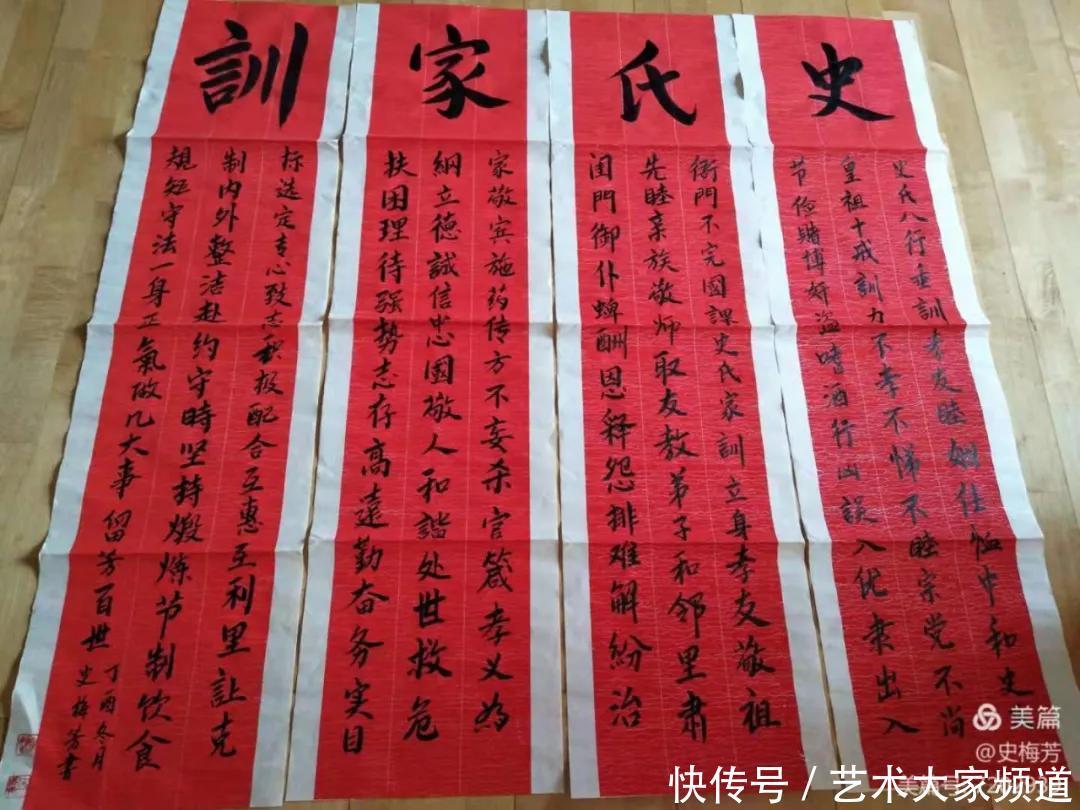 史
史氏八行垂訓孝友睦姻任恤中和史
皇祖十戒訓力不孝不悌不睦宗党不尚
节俭赌博奸盗嗜酒行凶误入优隶出入
氏
衙門不完國課史氏家訓立身孝友敬祖
先睦亲族敬师取友教弟子和邻里肃
闺門御仆婢酬恩释怨排难解纷治
家
家敬宾施药传方不妄杀官箴孝义为
綱立德誠信忠國敬人和諧处世救危
扶困理待强势志存高遠勤奋务实目
訓
标选定专心致志积极配合互惠互利里让克
制内外整洁赴约守時坚持煅炼节制饮食
規矩守法一身正氣做几大事留芳百世
丁酉冬月
史梅芳書
美篇
@史梅芳
快传号 / 艺术大家频道